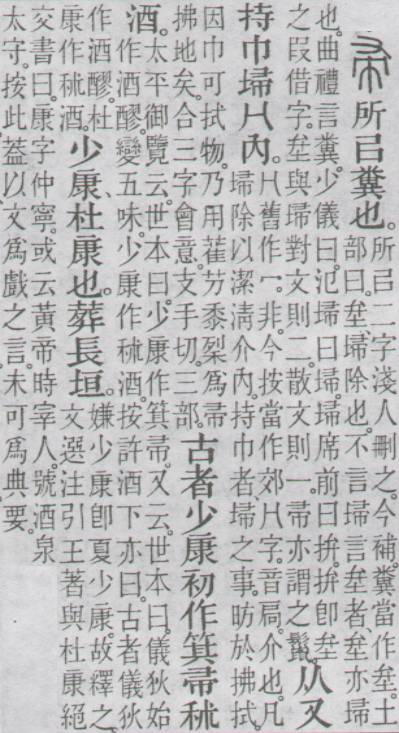 帚 所㠯糞也。所㠯二字淺人刪之。今補。糞當作𡊅。土部曰。𡊅、埽除也。不言埽言𡊅者、𡊅亦埽
也。曲禮言糞。少儀曰。氾埽曰埽。埽席前曰拚。拚卽𡊅之叚借字。𡊅與埽對文則二。散文則一。帚亦謂之鬣。从又
持巾埽冂內。冂舊作一。非。今按當作郊冂字。音扃。介也。凡埽除以潔淸介內。持巾者、埽之事。昉於拂拭。
因巾可拭物。乃用萑芀黍𥝩爲帚拂地矣。合三字會意。支手切。三部。古者少康初作箕帚秫
酒。太平御覽云。世本曰。少康作箕帚。又云。世本曰。儀狄始作酒醪。變五味。少康作秫酒。按許酒下亦曰。古者儀狄
作酒醪。杜康作秫酒。少康、杜康也。葬長垣。嫌少康卽夏少康。故釋之。文選注引王著與杜康絕
交書曰。康字仲寧。或云黃帝時宰人。號酒泉太守。按此葢以文爲戲之言。未可爲典要。